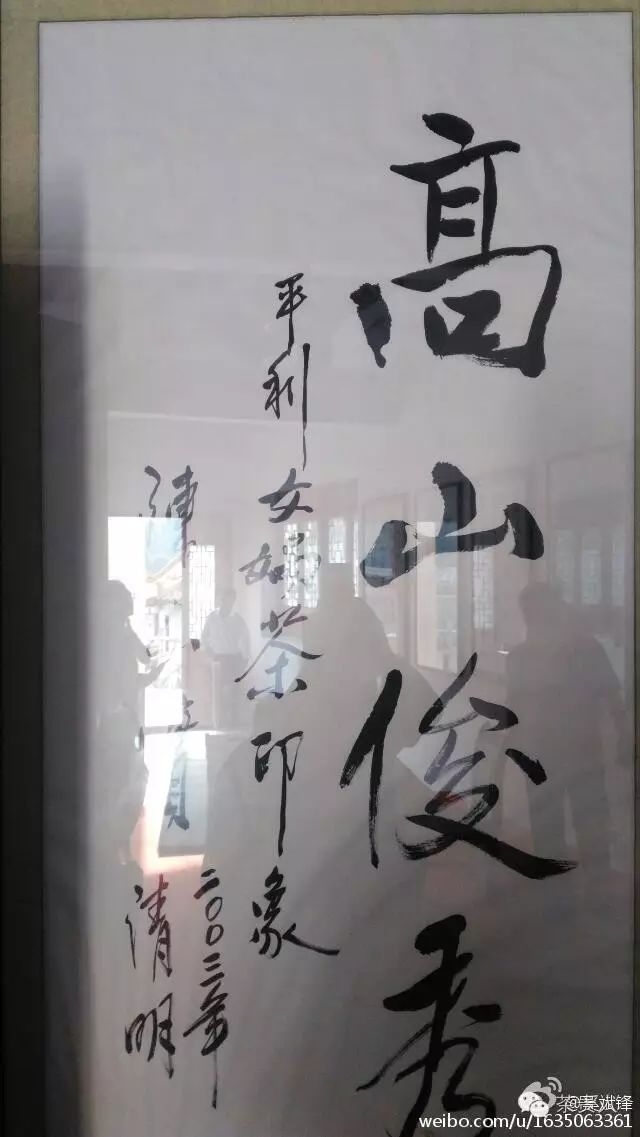 高山俊秀
平利女娲茶印象
陳
二〇〇三年
清明
weibo.com/u/1635063361